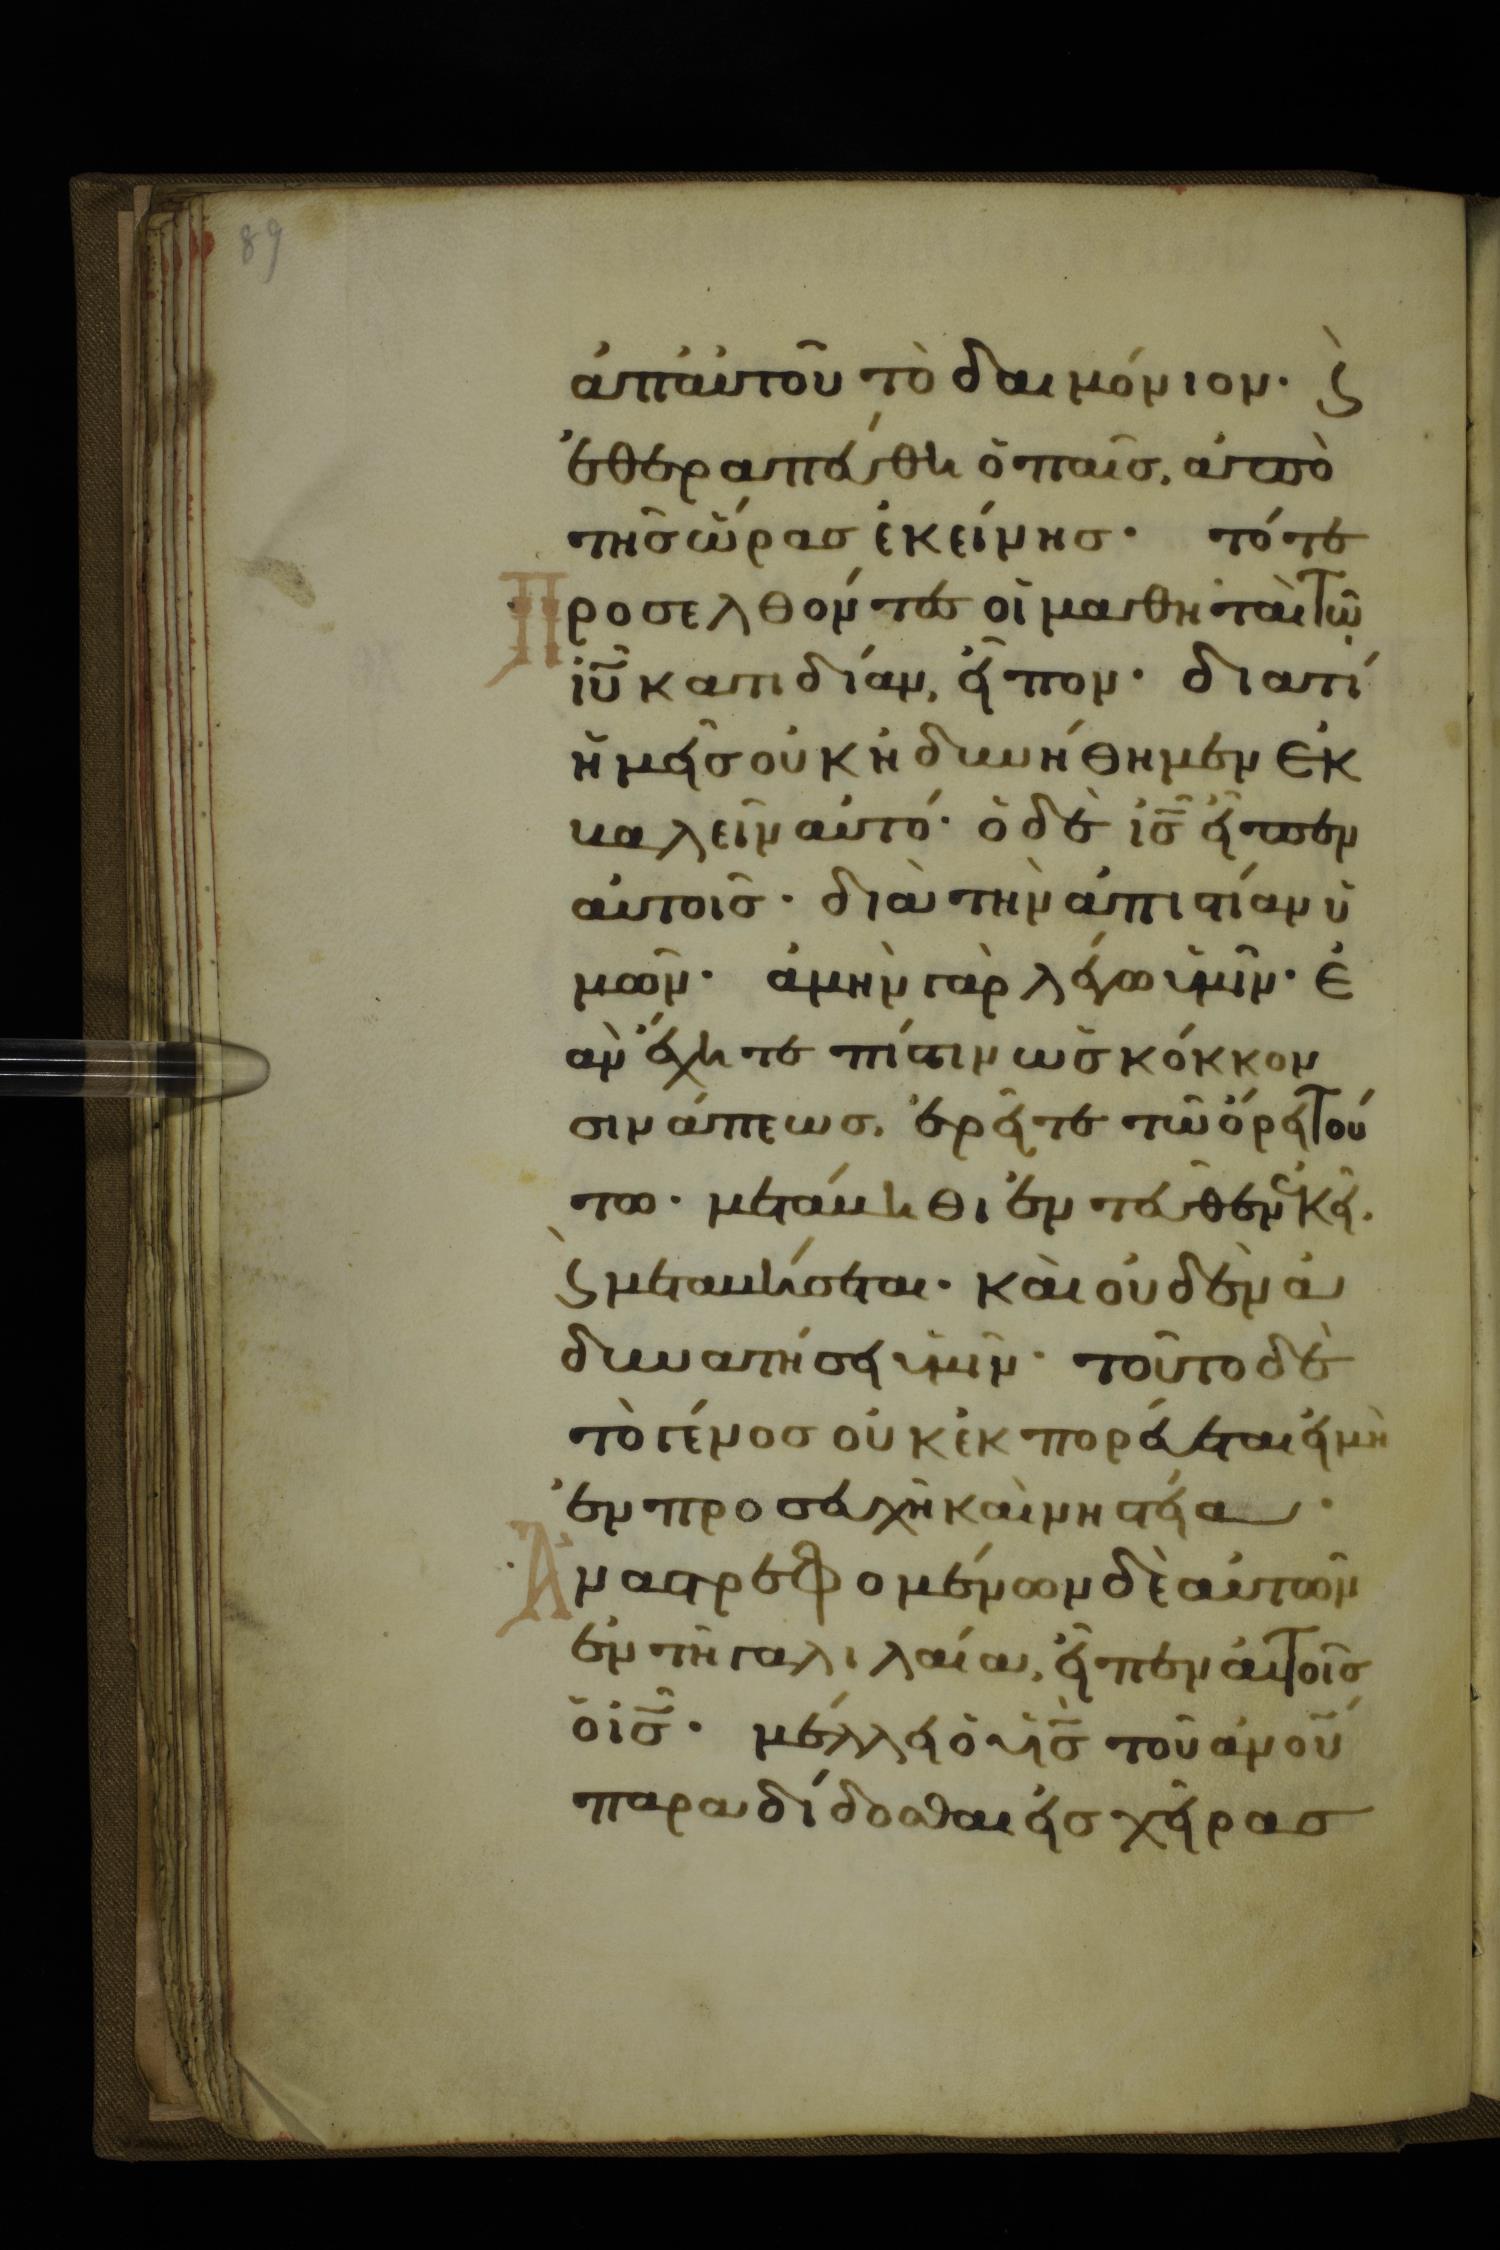 89
ἀπ' αὐτοῦ τὸ δαιμόνιον· ϗ
ἐθεραπεύθη ὁ παῖς, ἀπὸ
τῆς ὥρας ἐκείνης· τότε
Προσελθόντες οἱ μαθηταὶ τῶ
ἰῦ κατιδίαν, εἶπον· διατί
ἡμεῖς οὐκ ἠδυνήθημεν ἐκ
βαλεῖν αὐτό· ὁ δὲ ἰς̅ εἶπεν
αὐτοῖς· διὰ τὴν ἀπιστίαν ὑ
μῶν· ἀμὴν γὰρ λέγω ὑμῖν· ἐ
ὰν ἔχητε πίστιν ὡς κόκκον
σινάπεως, ἐρεῖτε τῶ ὄρει τού
τω· μετάβηθι ἐντεῦθεν ἐκεῖ,
ϗ μεταβήσεται· καὶ οὐδὲν ἀ
δυνατήσει ὑμῖν· τοῦτο δὲ
τὸ γένος οὐκ ἐκπορεύεται εἰ μὴ
ἐν προσευχῆ καὶ νηστεία·
Ἀναστρεφομένων δὲ αὐτῶν
ἐν τῆ γαλιλαία, εἶπεν αὐτοῖς
ὁ ἰς̅· μέλλει ὁ ὑς̅ τοῦ ἀνοῦ
παραδίδοσθαι εἰς χεῖρας